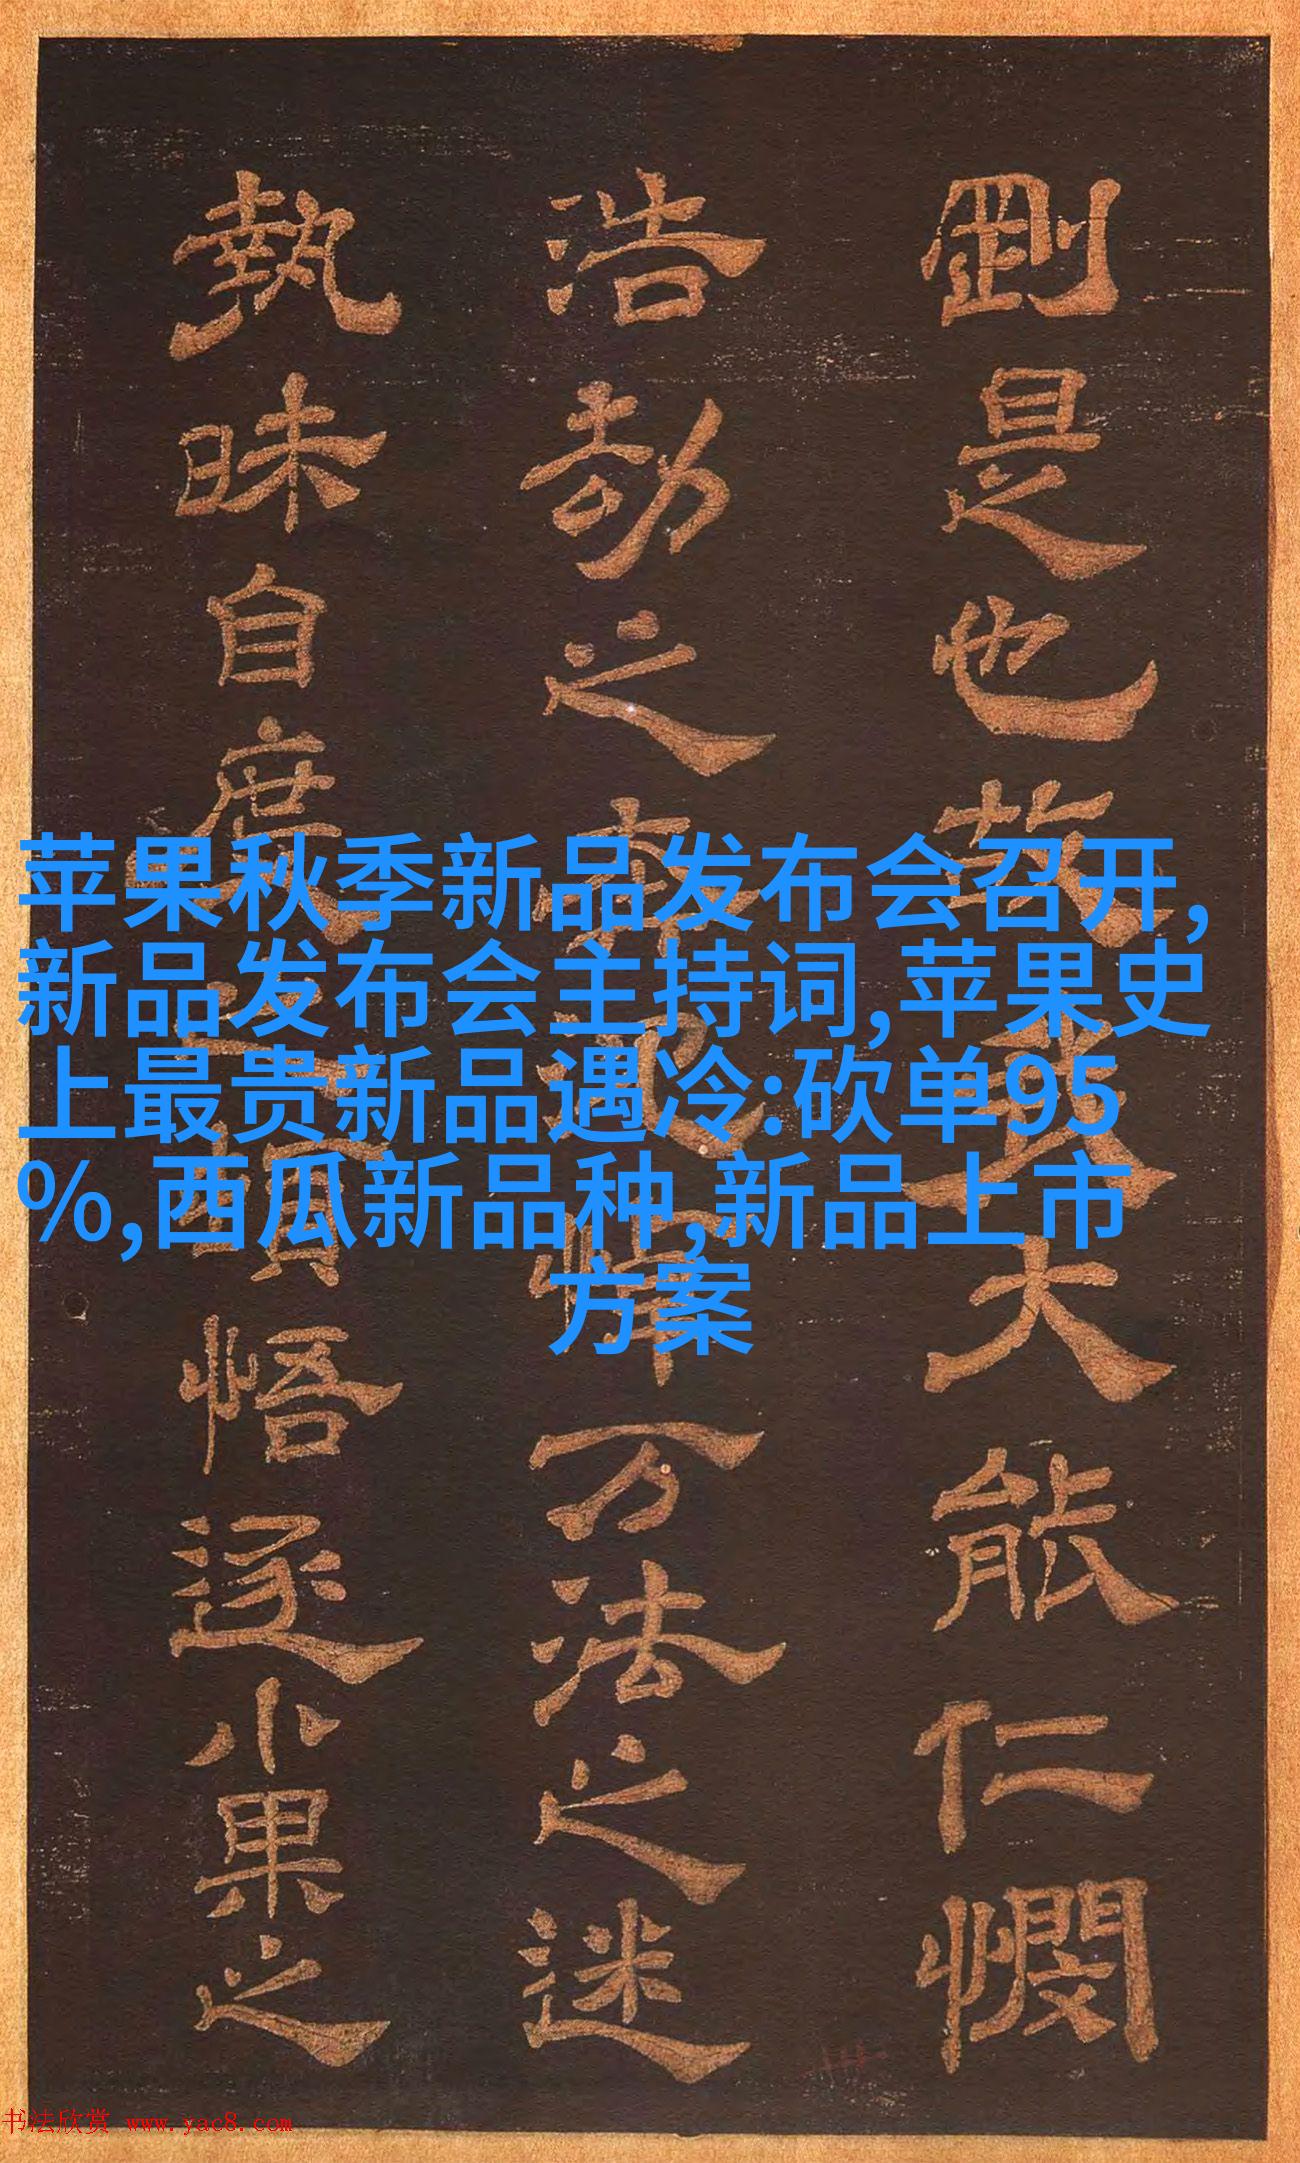 剛是也故大能仁憫
浩劫之萬法之迷
執昧自度之頓悟逐小果之
苹果秋季新品发布会召开,
新品发布会主持词,苹果史
上最贵新品遇冷:砍单95
%,西瓜新品种,新品上市
方案
书法欣赏 www.yac8.com